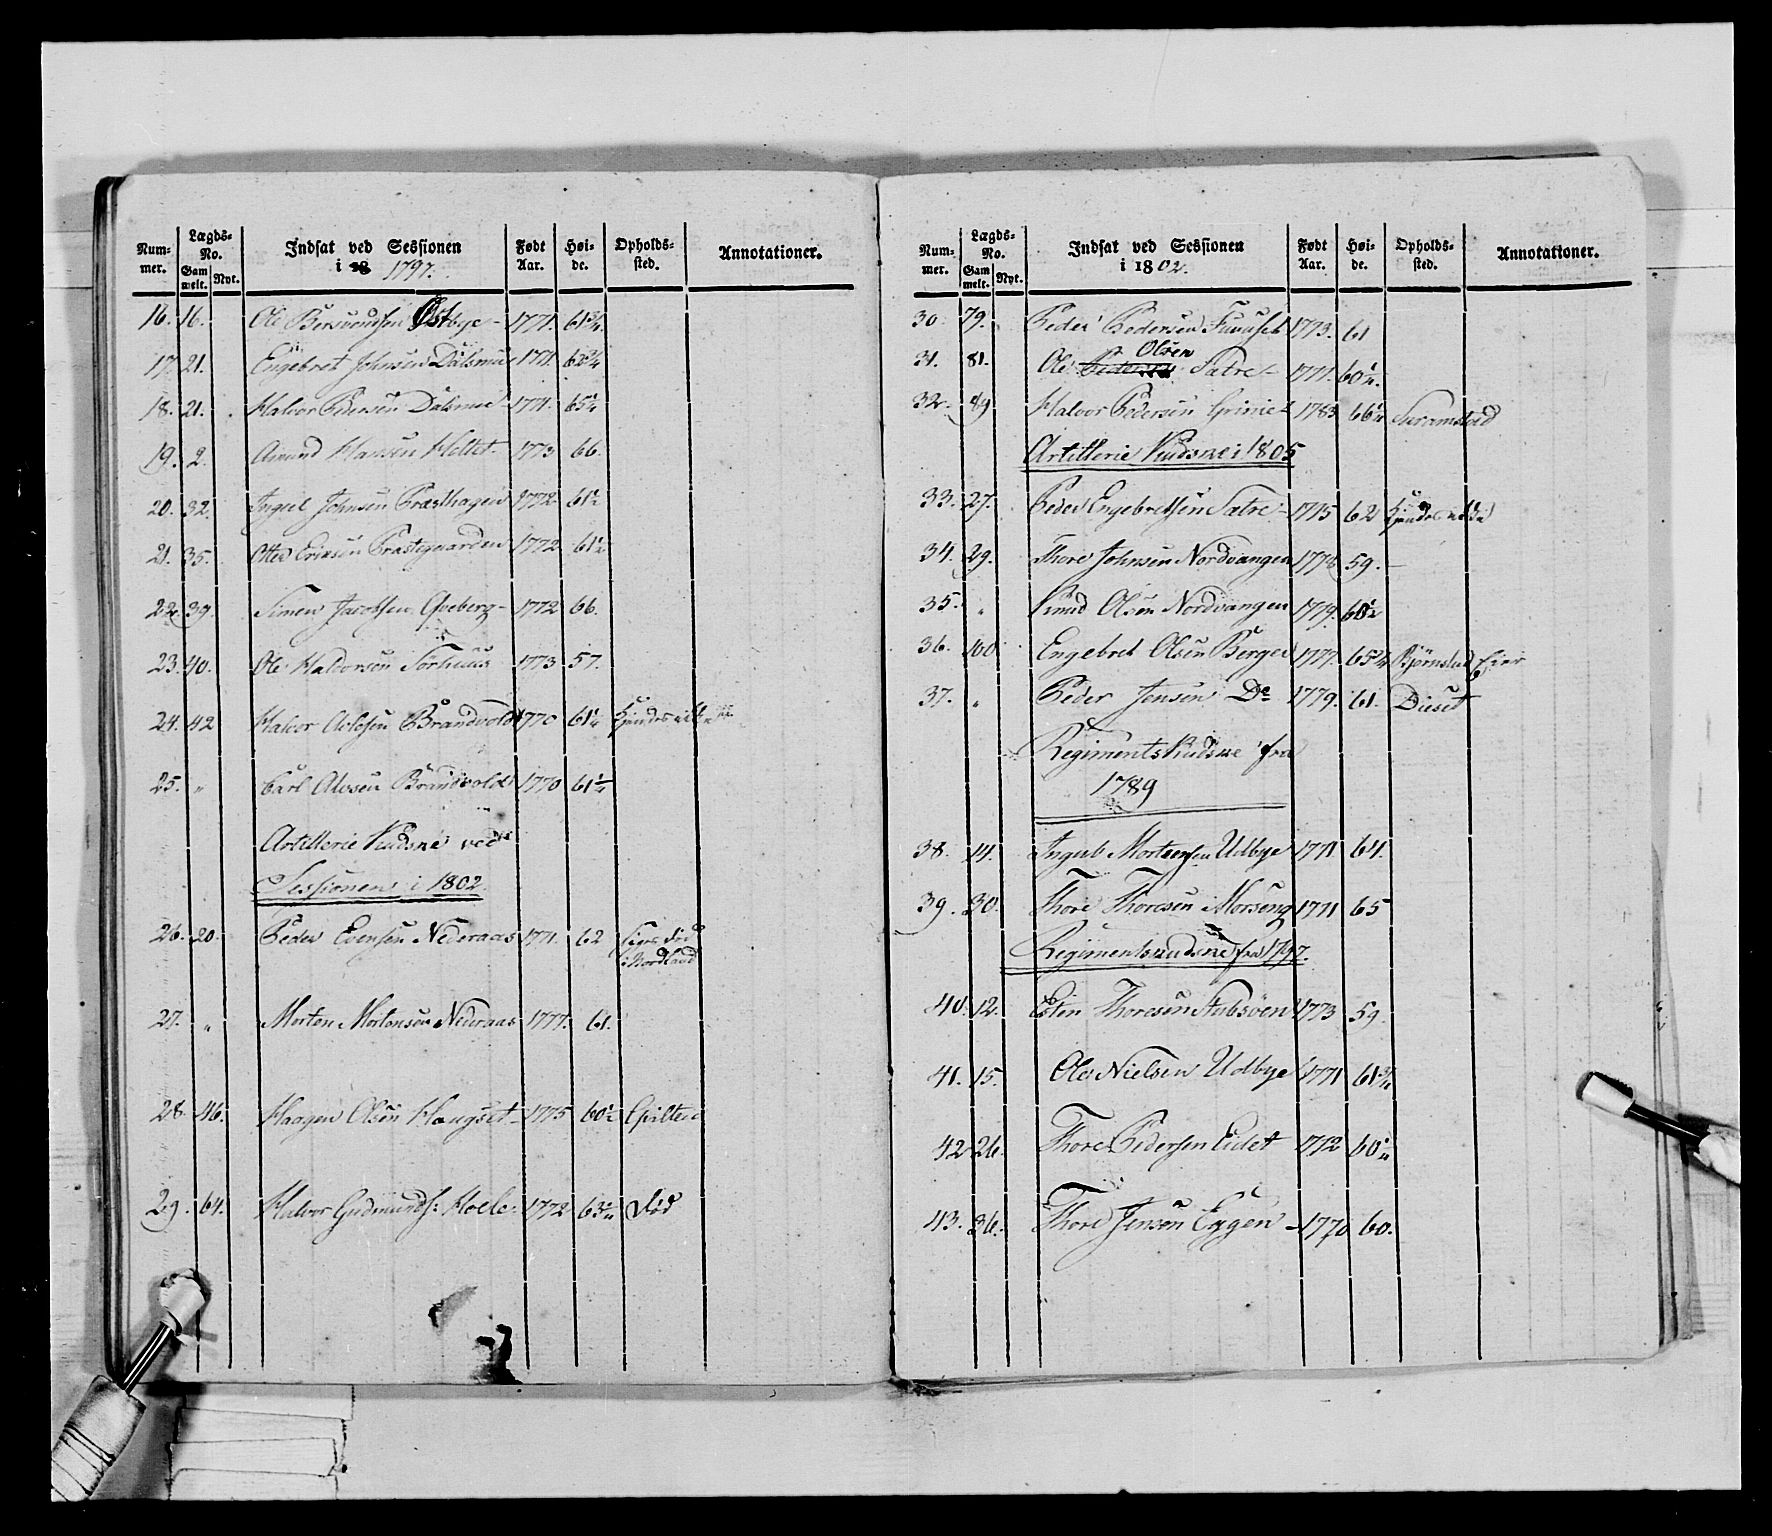 Num-mer. Lægds-No. Gam melt. Nyt. Indsat ved Sessionen i 18 1797. Født Aar. Høi-de. Opholds-sted. Annotationer.
16. 16. Ole Østbye 1771. 61 3/4
17. 21. Engebret Johnsen Dalsmoe 1771.
18. 21. Halvor Pedersen Dalsmoe 1771. 65 1/4
19. 2. Amund Hansen 1773 66.
20. 32. Johnsen Præsthagen 1772 61 1/2
21. 35. Præstegaarden 1772 61 1/2
22. 39. Simen Jacobsen Qveberg 1772 66.
23. 40. Ole Haldorsen 1773 57.
24. 42 Halvor Brandvold 1770 61 1/4
25. " Carl Brandvold 1770 61 1/4
Artillerie Kudske ved
Sessionen i 1802
26. 20. Peder Evensen Nederaas 1771. 62 siges død
i Nordland
27. " Morten Mortensen Nederaas 1777. 61.
28. 46. Haagen Olsen Haugset 1775 60 1/2
29. 64. Halvor Gudmunds: Moele 1772 død
Num-mer. Lægds-No. Gam melt. Nyt. Indsat ved Sessionen i 1802. Født Aar. Høi-de. Opholds-sted. Annotationer.
30. 79. Peder Pedersen Furuset 1773. 61
Olsen
31. 81. Ole Pedersen Satre 1771. 60 1/4.
32. 89 Halvor Pedersen 1783 66 1/4
Artillerie Kudske i 1805
33. 27. Peder Engebretsen Satre 1775 62
34. 29. Thore Johnsen Nordvangen 1778 59.
35. " Knud Olsen Nordvangen 1779.
36. 100 Engebret Olsen Berger 1777. 65 3/4 Bjørnstad Eier
37. " Peder Jensen Do 1779. 61. Dieset
Regiments Kudske fra
1789
38. 14. Mortensen Udbye 1771 64.
39. 30. Thore Thoresen Morseng 1771 65
Regimentskudske fra 1797.
40. 12. Esten Thoresen Stubsøen 1773 59.
41. 15. Ole Nielsen Udbye 1771 61 3/4
42 26. Thore Pedersen Eidet 1772 60 1/4
43. 36. Thore Jensen Eggen 1770 60.